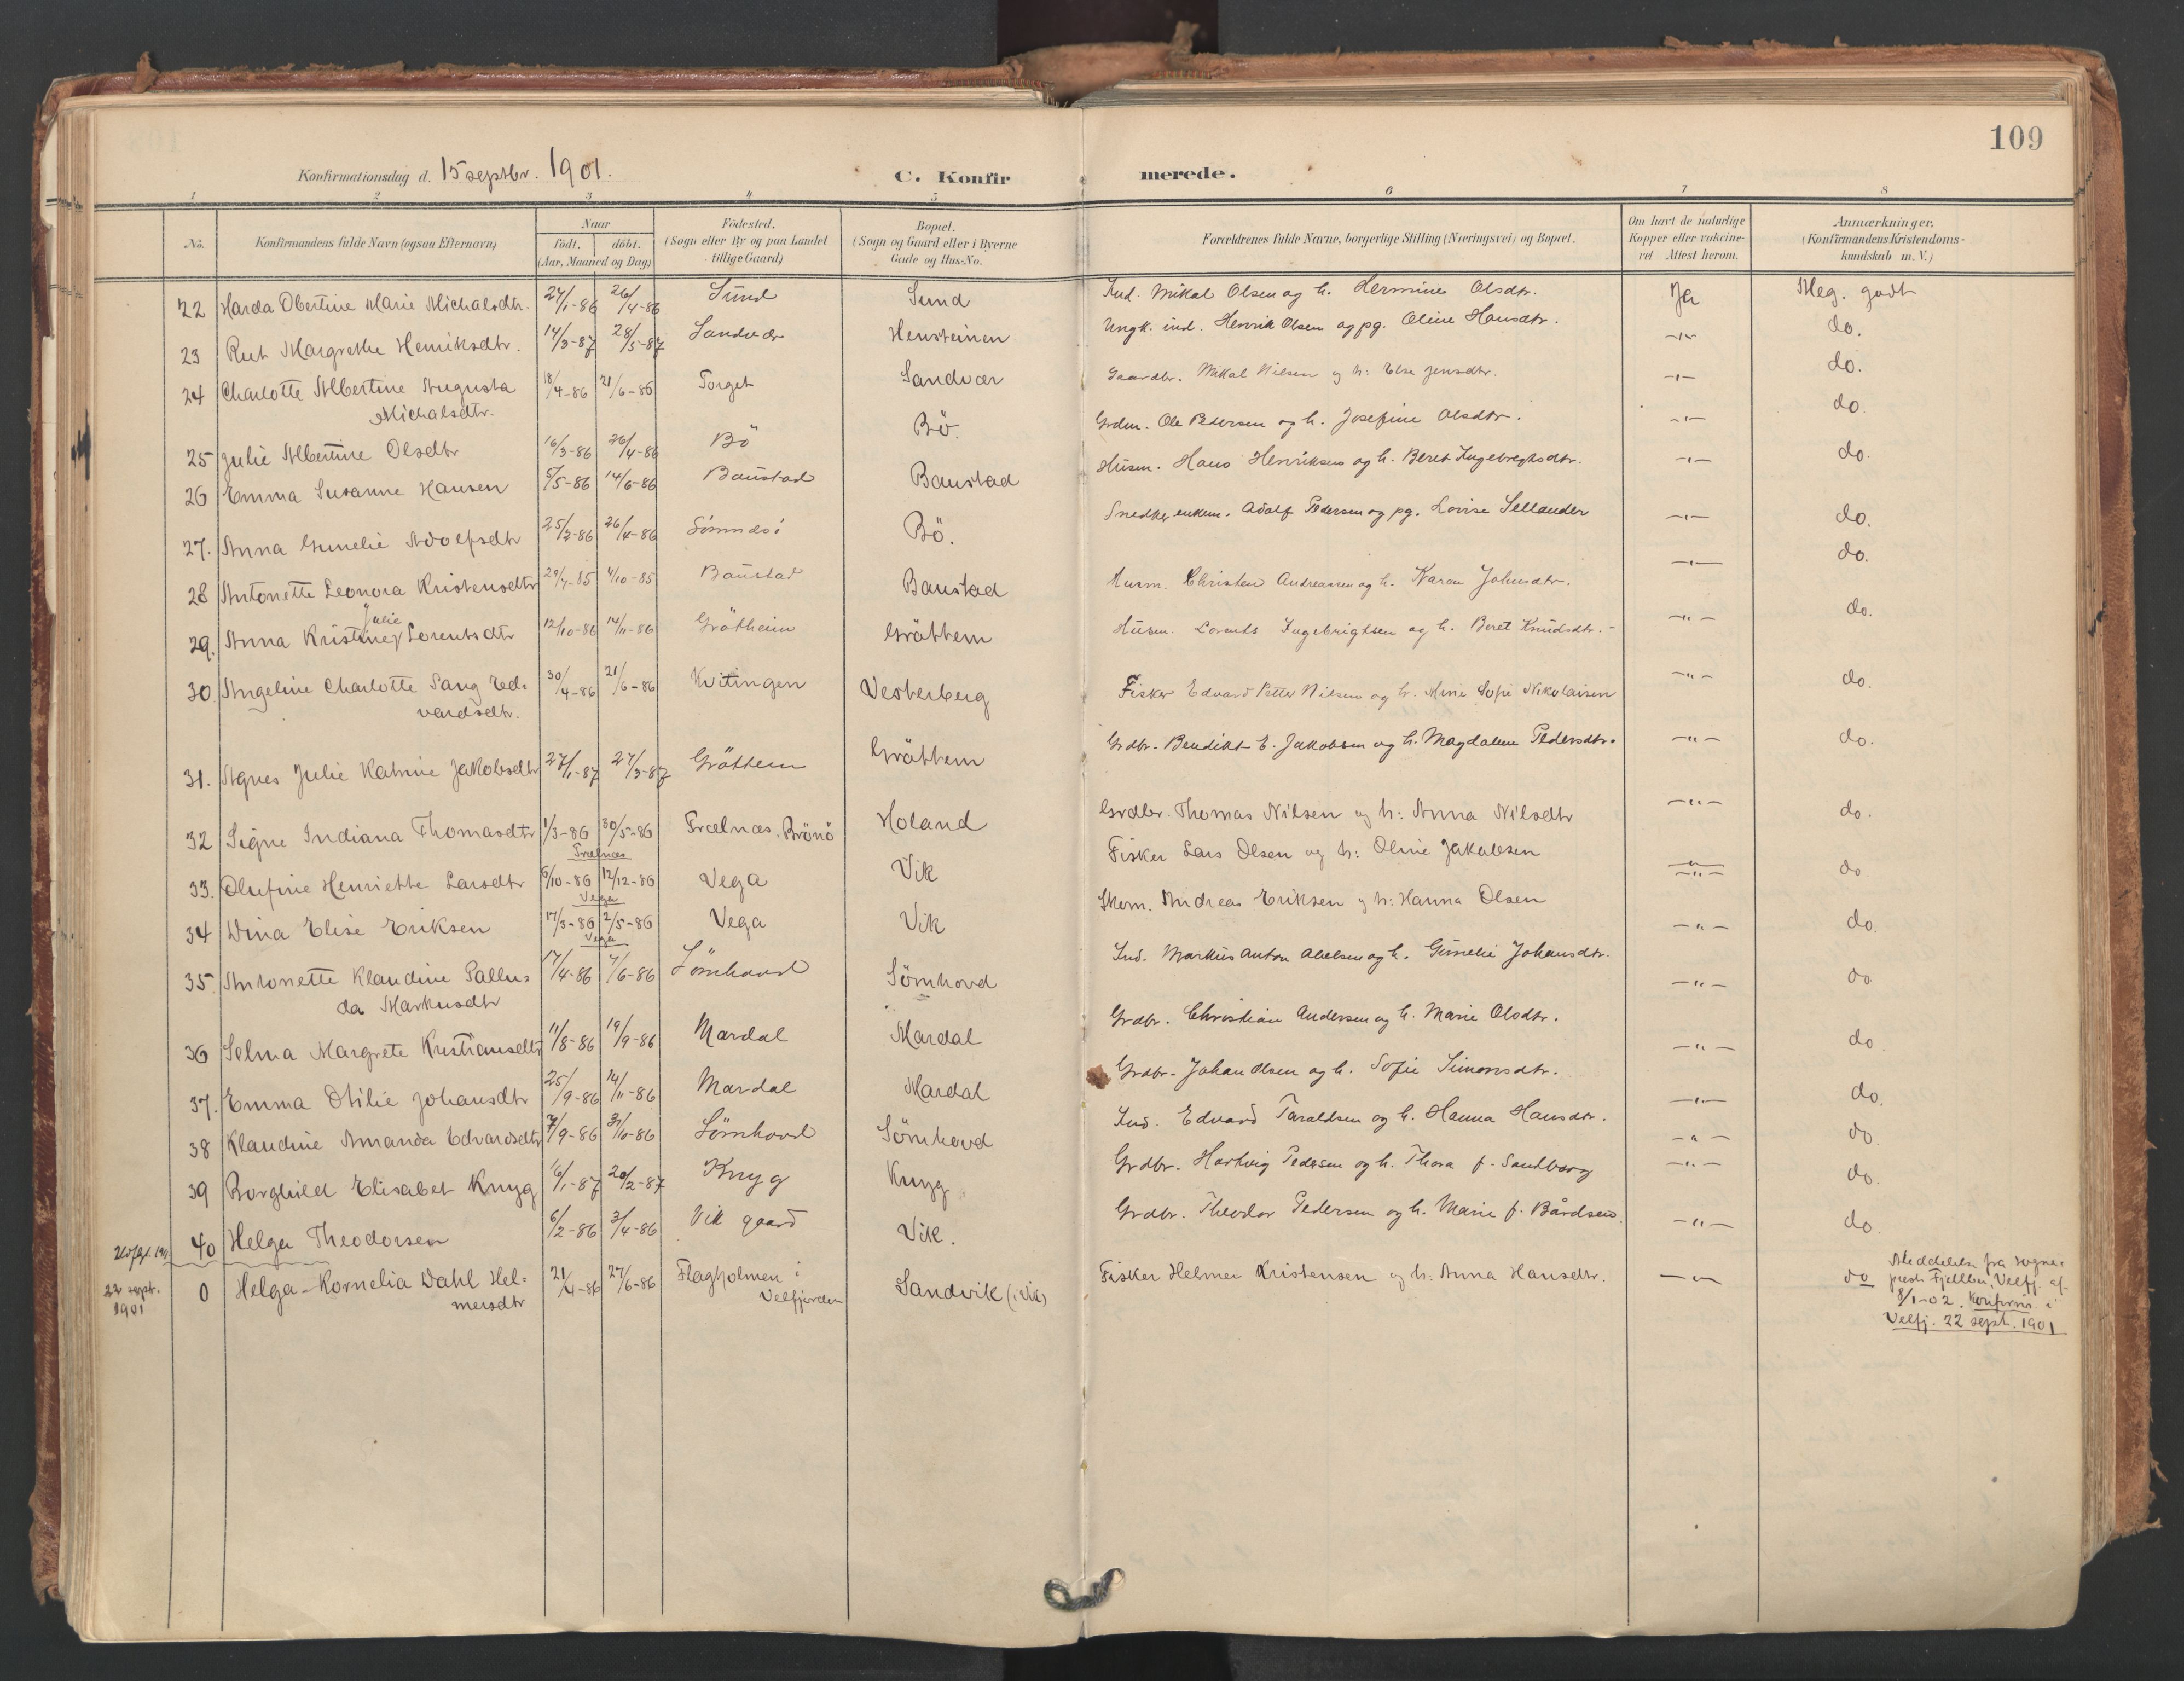 109
Konfirmationsdag d. 15 septbr. 1901.
C. Konfirmerede.
1 2 3 4 5 6 7 8
No.
Konfirmandens fulde Navn (ogsaa Efternavn)
Naar
födt. döbt.
(Aar, Maaned og Dag)
Födested.
(Sogn eller By og paa Landet
tillige Gaard)
Bopæl.
(Sogn og Gaard eller i Byerne
Gade og Hus-No.
Forældrenes fulde Navne, borgerlige Stilling (Næringsvei) og Bopæl.
Om havt de naturlige
Kopper eller vakcine-
ret Attest herom.
Anmærkninger.
(Konfirmandens Kristendoms-
kundskab m. V.)
22 Harda Obertine Marie Michalsdtr. 24/1-86 26/4-86 Sund Sund Ind. Mikal Olsen og h. Hermine Olsdtr. Ja Meg. godt
23 Rut Margrethe Henriksdtr. 14/3-87 28/5-87 Sandvær Hensteinen Ungk. ind. Henrik Olsen og pg. Oline Hansdtr. -"- do.
24 Charlotte Albertine Augusta
Michalsdtr. 18/4-86 21/6-86 Torget Sandvær Gaardbr. Mikal Nilsen og h: Else Jensdtr. -"- do.
25 Julie Albertine Olsdtr 16/3-86 26/4-86 Bö Bö. Grdm. Ole Pedersen og h. Josefine Olsdtr. -"- do
26 Emma Susanne Hansen 5/5-86 14/6-86 Baustad Baustad Husm. Hans Henriksen og h. Beret Ingebregtsdtr. -"- do.
27. Anna Gunelie Adolfsdtr 25/2-86 26/4-86 Sömnæs Bö. Snedker enkem. Adolf Pedersen og pg. Lovise Sellander -"- do.
28 Antonette Leonora Kristensdtr 29/7-85 4/10-85 Baustad Baustad Husm. Christen Andreassen og h. Karen Johnsdtr. -"- do.
Julie
29. Anna Kristine Lorentsdtr 12/10-86 14/11-86 Gråtheim Gråttem Husm. Lorents Ingebrigtsen og h. Beret Knudsdtr. -"- do.
30. Angeline Charlotte Sang Ed-
vardsdtr. 30/4-86 21/6-86 Kvitingen Vesterberg Fisker Edvard Petter Nilsen og h. Mine Sofie Nikolaisen -"- do.
31. Agnes Julie Katrine Jakobsdtr 27/1-87 27/3-87 Gråttem Gråttem Grdbr. Bendikt E. Jakobsen og h. Magdalene Pedersdtr. -"- do.
32 Signe Indiana Thomasdtr 1/3-86 30/5-86 Trælnæs, Brönö Holand Grdbr. Thomas Nilsen og h: Anna Nilsdtr -"- do.
Trælnæs
33. Olufine Henriette Larsdtr 6/10-86 12/12-86 Vega Vik Fisker Lars Olsen og h: Oline Jakobsen -"- do
Vega
34 Dina Elise Eriksen 17/3-86 2/5-86 Vega Vik Skom. Andreas Eriksen og h: Hanna Olsen -"- do.
Vega
35. Antonette Klaudine Pallu-
da Markusdtr 17/4-86 7/6-86 Sömhovd Sömhovd Ind. Markus Anton Abelsen og h. Gunelie Johansdtr. -"- do
36 Selma Margrete Kristiansdtr 11/8-86 19/9-86 Mardal Mardal Grdbr. Christian Andersen og h. Marie Olsdtr. -"- do
37. Emma Otilie Johansdtr 25/9-86 14/11-86 Mardal Mardal Grdbr. Johan Olsen og h. Sofie Simonsdtr. -"- do.
38 Klaudine Amanda Edvardsdtr 7/9-86 31/10-86 Sömhovd Sömhovd Ind. Edvard Taraldsen og h. Hanna Hansdtr. -"- do.
39 Borghild Elisabet Knyg 16/1-87 20/2-87 Knyg Knyg Grdbr. Hartvig Pedersen og h. Thora f. Sandberg -"- do.
40 Helga Theodorsen 6/2-86 3/4-86 Vik gaard Vik. Grdbr. Theodor Pedersen og h. Marie f. Bårdsen. -"- do.
22 sept.
1901
0 Helga Kornelia Dahl Hel-
mersdtr 21/4-86 27/6-86 Flagholmen i
Velfjorden Sandvik (i Vik) Fisker Helmer Kristensen og h: Anna Hansdtr. -"- do
Meddelelse fra sogne-
prest Fjellbu, Velfj. af
8/1-02. Konfirm. i
Velfj. 22 sept. 1901